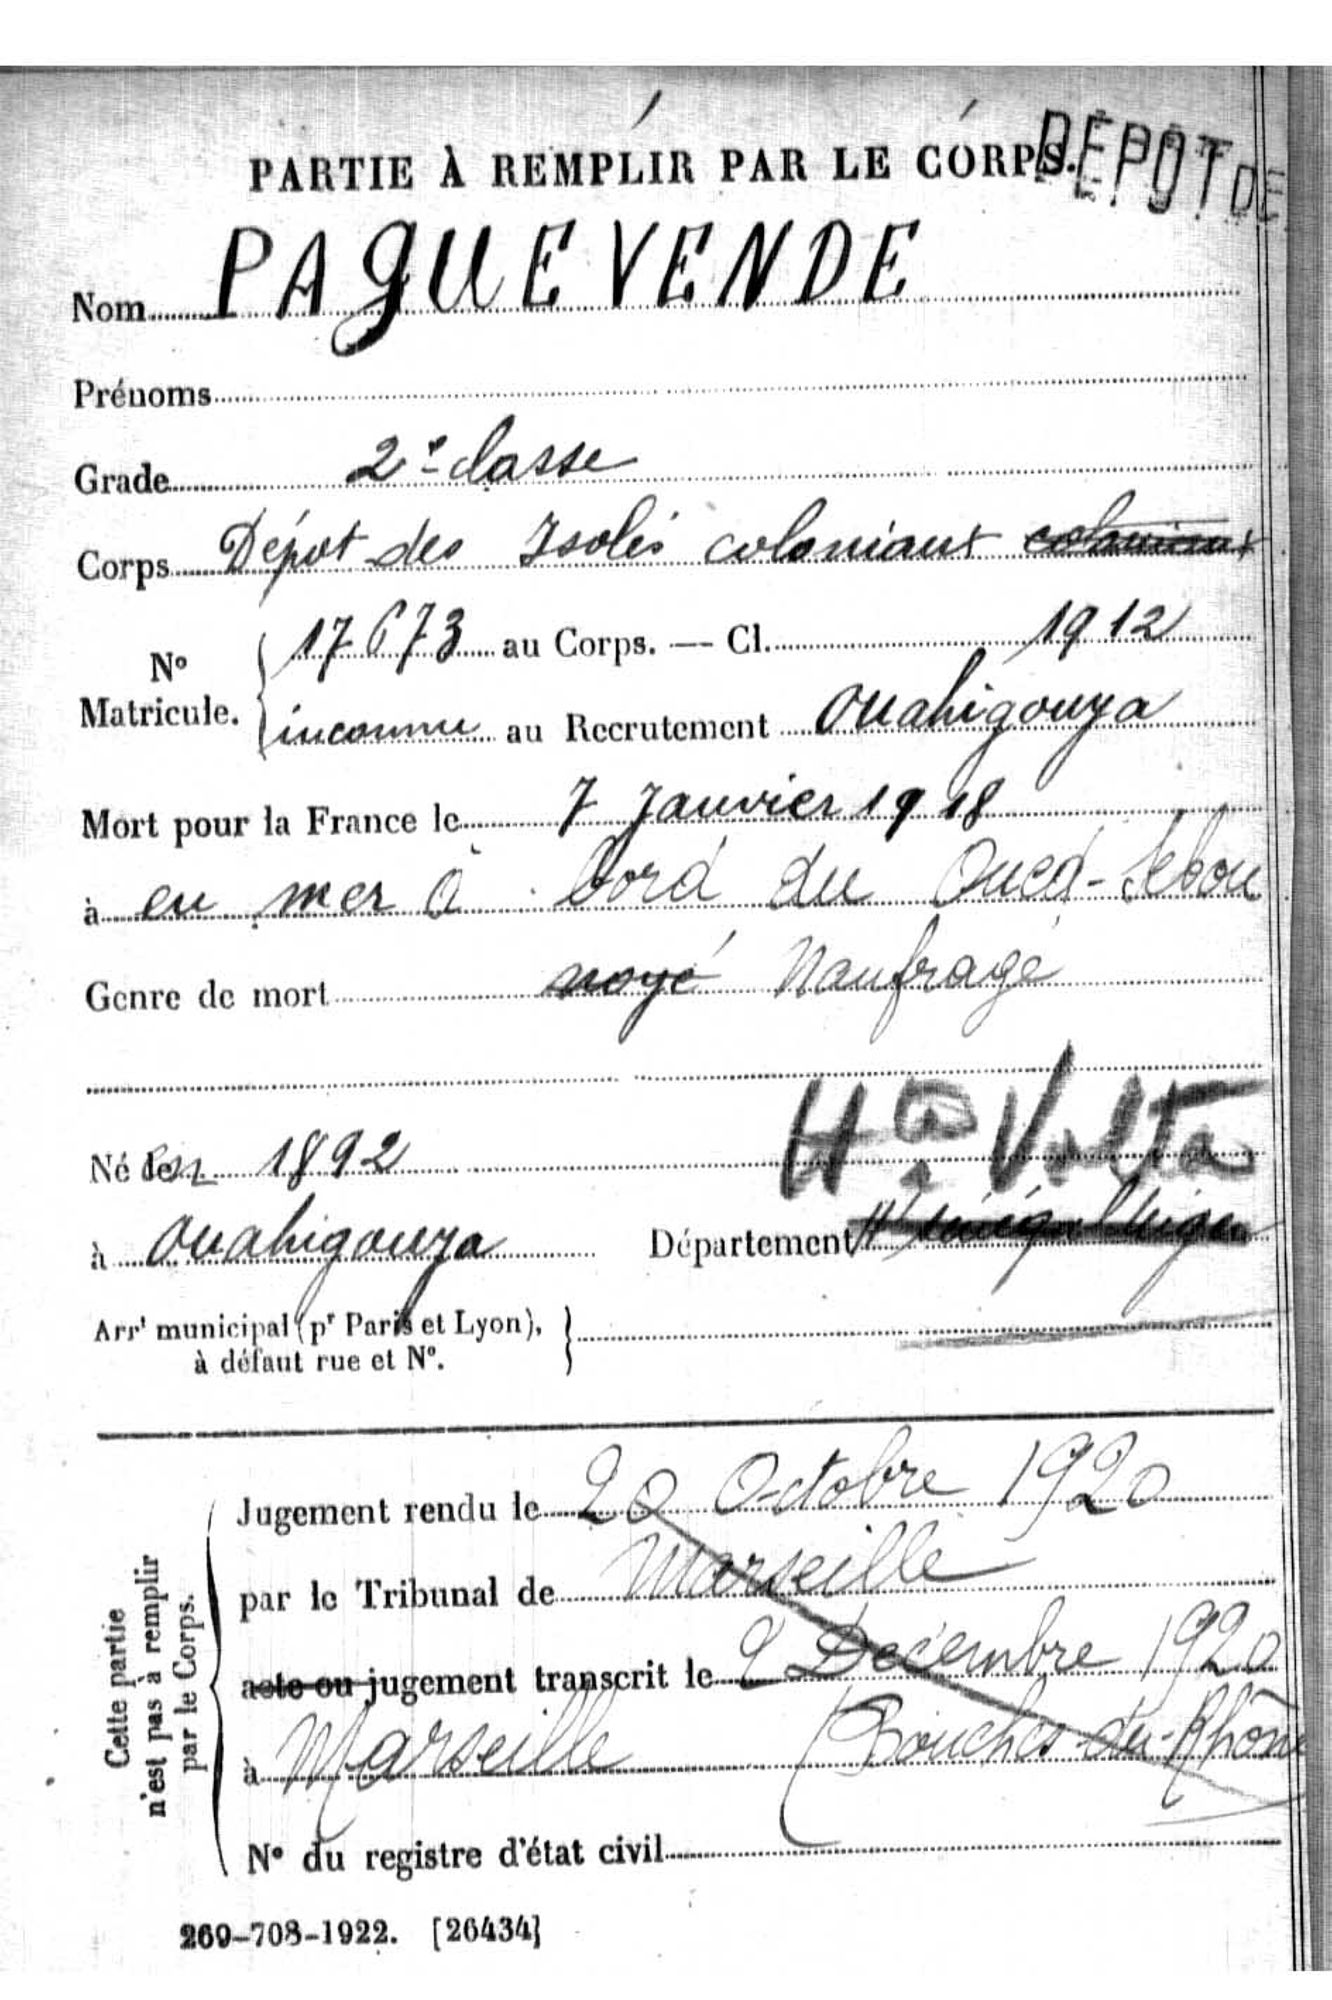 PARTIE À REMPLIR PAR LE CORPS.
DÉPOT DE
Nom PAGUEVENDE
Prénoms
Grade 2e classe
Corps Dépot des Isolés coloniaux coloniaux
No Matricule. 17673 au Corps. — Cl. 1912
inconnu au Recrutement Ouahigouya
Mort pour la France le 7 Janvier 1918
à en mer à bord du Oued-Sebou
Genre de mort noyé Naufragé
Hte Volta
Né le en 1892
à Ouahigouya Département Ht Sénégal Niger
Arrt municipal (pr Paris et Lyon),
à défaut rue et No.
Cette partie
n'est pas à remplir
par le Corps.
Jugement rendu le 20 Octobre 1920
par le Tribunal de Marseille
acte ou jugement transcrit le 2 Décembre 1920
à Marseille (Bouches-du-Rhône
No du registre d'état civil
269-708-1922. [26434]